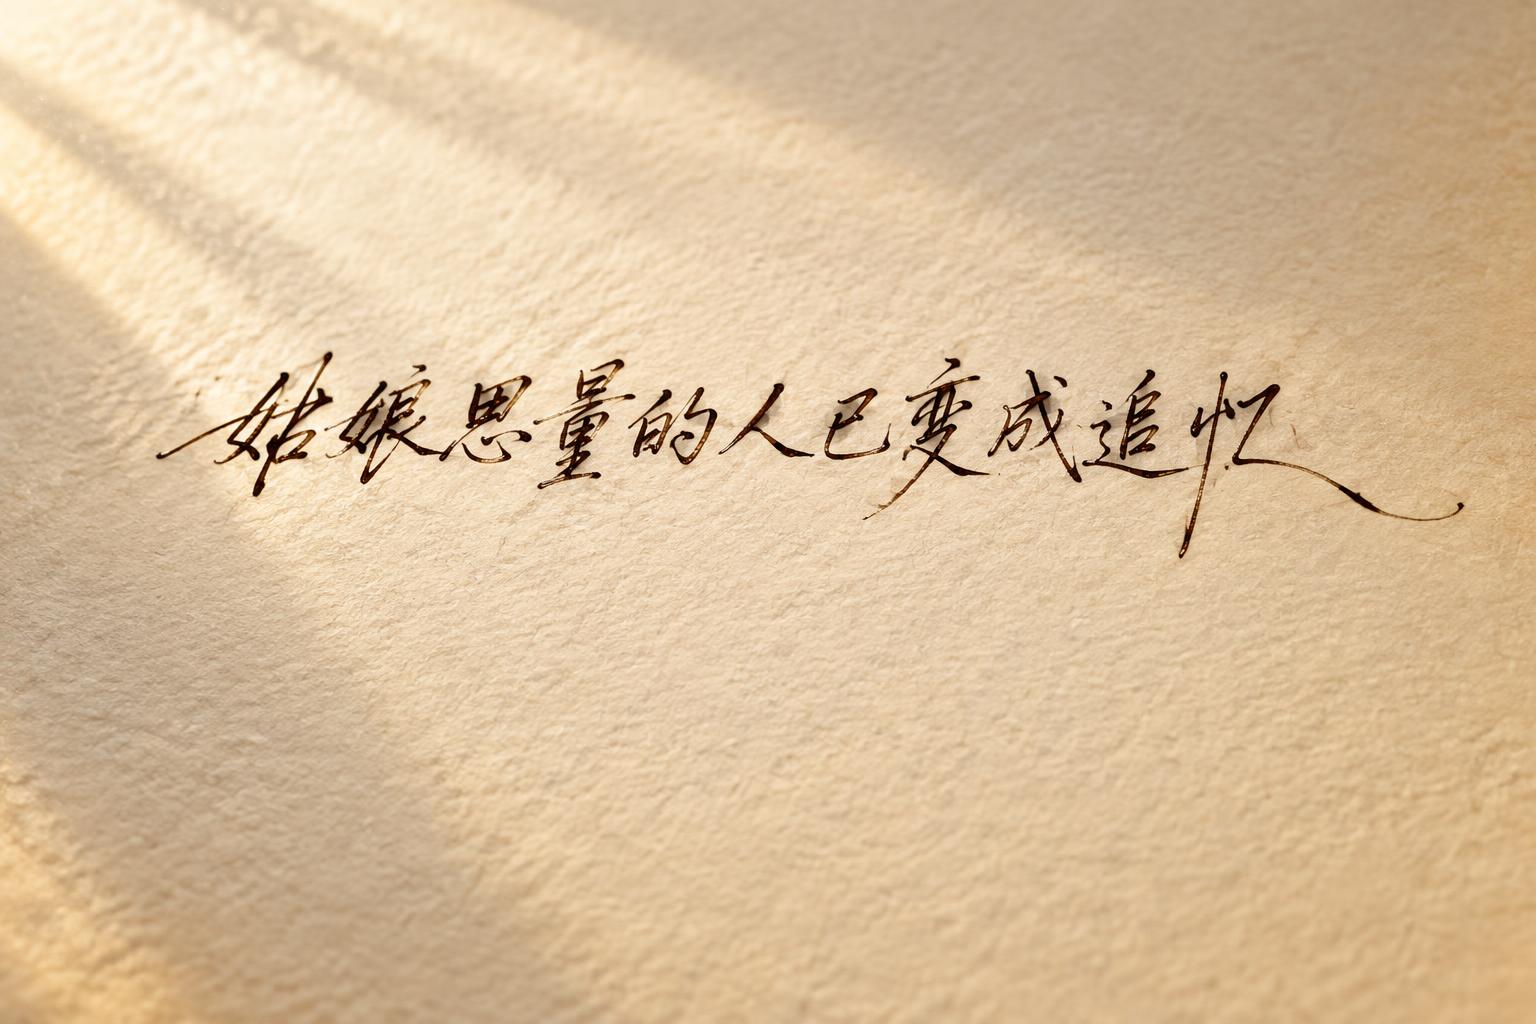 姑娘思量的人已变成追忆